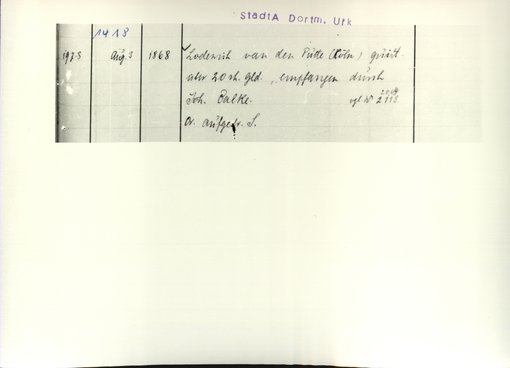 StadtA Dortm. Urk
1418
1975 Aug. 3 1868 Lodewich van den Putte (Köln) quitt.
über 20 rh. gld., empfangen durch
Joh. Palke. vgl. N° 2113
Or. aufgedr. S.